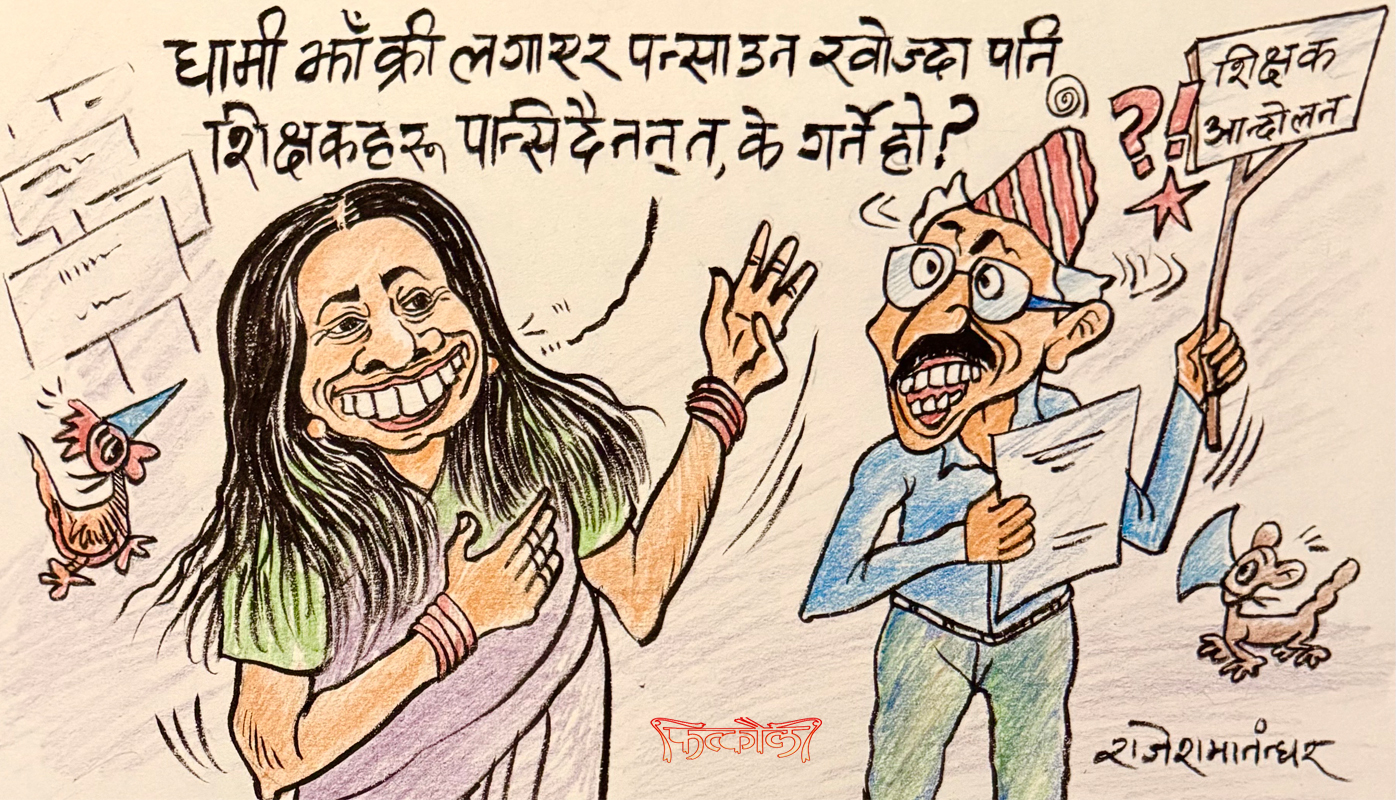 धामी झाँक्री लगाएर पन्साउन खोज्दा पनि
शिक्षकहरू पन्सिदैनन् त, के गर्ने हो?
?!
शिक्षक
आन्दोलन
फत्कौले
राजेश मानन्धर